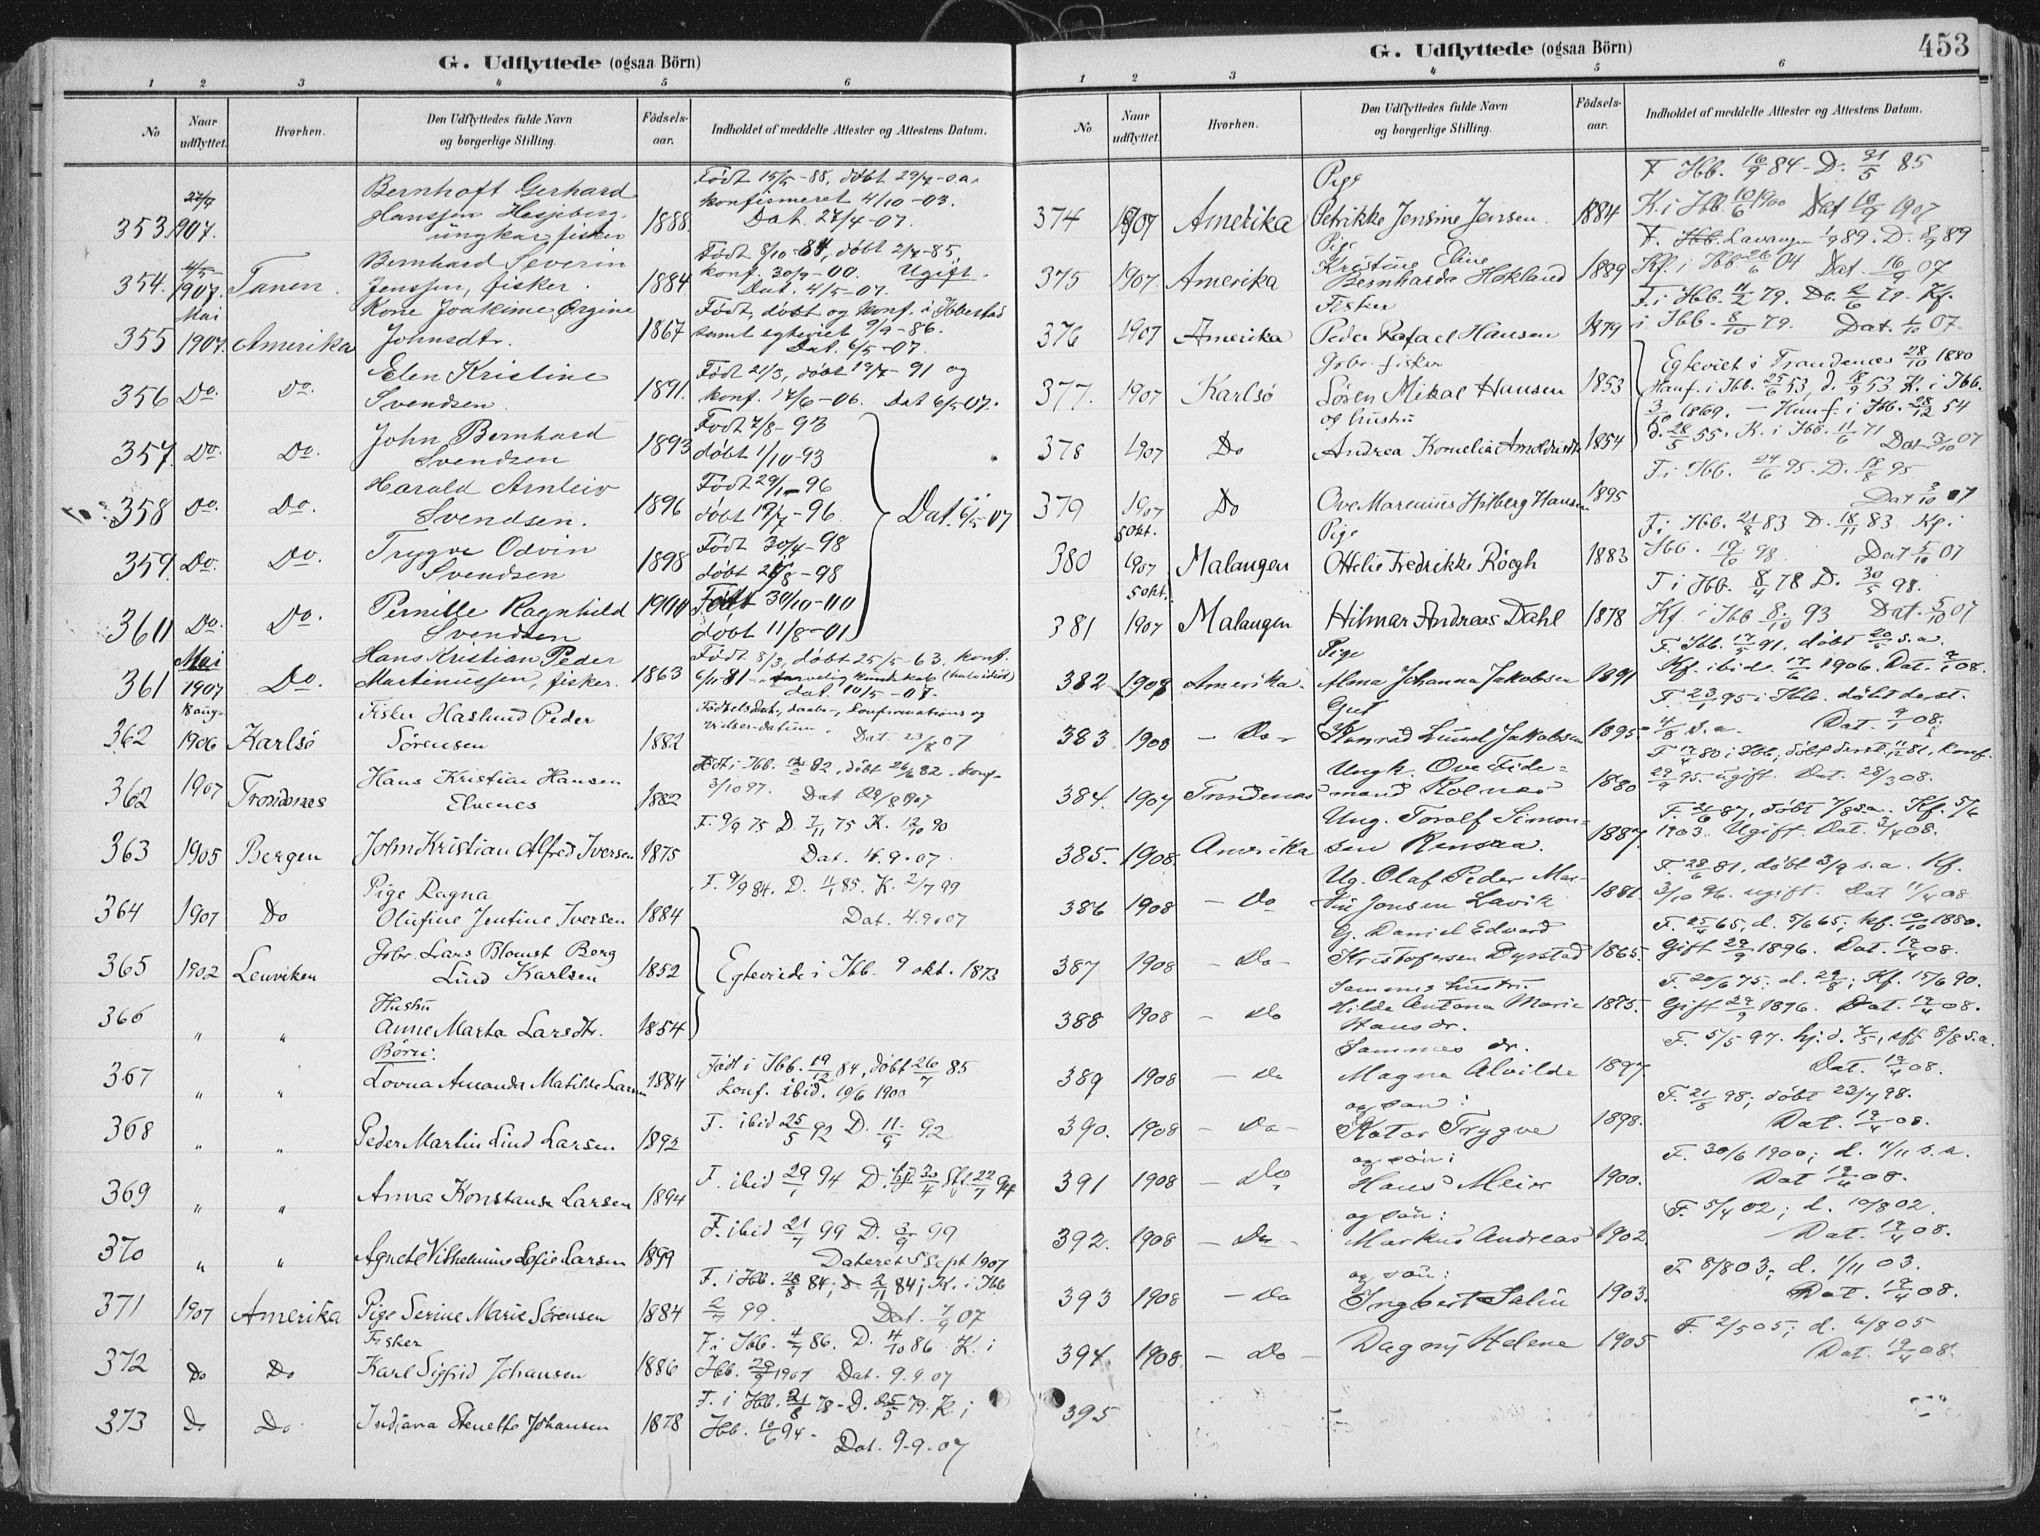 G. Udflyttede (ogsaa Börn)
1 2 3 4 5 6
No
Naar udflyttet.
Hvorhen.
Den Udflyttedes fulde Navn
og borgerlige Stilling.
Födsels-
aar.
Indholdet af meddelte Attester og Attestens Datum.
Bernhoft Gerhard
Født 15/5-88, døbt 29/7 s.a.
Hanssen Hesjeberg.
konfirmeret 4/10-03.
353. 27/4 907. ungkar, fisker 1888. Dat. 27/4-07.
Bernhard Severin
Født 8/10-84, døbt 2/7-85,
354. 4/5 1907. Tanen. Jenssen, fisker. 1884 konf. 30/9-00. Ugift.
Dat. 4/5-07.
Mai Kone Joakime Ørgine Født, døbt og konf. i Ibbestad
355 1907. Amerika Johnsdtr. 1867 samt egteviet 9/9-86.
Dat. 6/5-07.
Elen Kristine Født 21/3, døbt 19/7-91 og
356 Do. Do. Svendsen. 1891. konf. 17/6-06. Dat 6/5-07.
John Bernhard Født 7/8-93
357. Do. Do. Svendsen 1893 døbt 1/10-93
Harald Arnleiv Født 29/1-96
358 Do. Do. Svendsen. 1896 døbt 19/7-96. Dat. 6/5-07
Trygve Odvin Født 30/4-98
359. Do. Do. Svendsen 1898 døbt 28/8-98
Pernille Ragnhild Født 30/10-00
360 Do. Do. Svendsen 1900 døbt 11/8-01
Mai Hans Kristian Peder Født 8/3, døbt 25/5-63. konf.
361 1907 Do. Martinussen, fisker. 1863 6/11-81
dat. 10/5-07.
Fisker Haslund Peder
362 1906 Karlsö Sörensen 1882 Dat. 23/8 07
Hans Kristian Hansen Födt i Ibb. 82, döbt 26/6 82. konf.
362 1907 Trondenes Elvenes 1882 3/10 97. Dat 29/8 1907
F. 9/9 75 D. 7/11 75 K. 12/10 90
363 1905 Bergen John Kristian Alfred Iversen 1875 Dat. 4.9.07.
Pige Ragna F. 9/9 84. D. 11/1 85. K. 2/7 99
364 1907 Do Olufine Jentine Iversen 1884 Dat. 4.9.07
Gbr. Lars Blomst Berg
365 1902 Lenviken Lind Karlsen 1852 Egteviede i Ibb. 9 okt. 1873
Hustru
366 " " Anne Marta Larsdtr. 1854
Børn: Født i Ibb. 19/12 84, døbt 26/7 85
367 " " Lovna Amanda Matilde Larsen 1884 konf. ibid. 10/6 1900
F. ibid 25/5 92 D. 11/9 92
368 " " Peder Martin Lind Larsen 1892
F. ibid 29/1 94 D. 30/4 22/7 94
369 " " Anna Konstanse Larsen 1894
F. ibid 21/7 99 D. 3/9 99
370 " " Agnete Vilhelmine Sofie Larsen 1899 Dateret 5 Sept 1907
F. i Ibb. 28/8 84; D 2/11 84; K. i Ibb
371 1907 Amerika Pige Serine Marie Sørensen 1884 2/7 99. Dat. 7/9 07
Fisker F. i Ibb. 4/7 86. D. 4/10 86 K. i
372 Do Do Karl Sigfrid Johansen 1886 Ibb. 29/9 1901 Dat. 9.9.07
F. i Ibb. 21/8 78 - D. 25/5 79. K. i
373 Do Do Indiana Stenette Johansen 1878 Ibb. 10/6 94.
Dat. 9-9.07
G. Udflyttede (ogsaa Börn)
453
1 2 3 4 5 6
No
Naar udflyttet.
Hvorhen.
Den Udflyttedes fulde Navn
og borgerlige Stilling.
Födsels-
aar.
Indholdet af meddelte Attester og Attestens Datum.
Pige F. Ibb. 16/9 84 - D. 31/5 85
374 1907 Amerika Petrikke Jensine Jensen. 1884 K. i Ibb. 10/6 1900 Dat 10/9 1907
Pige F. Ibb. Lavangen 1/9 89. D. 8/9 89
Kristine Eline
375 1907 Amerika Bernharda Hokland 1889 Kf. i Ibb 26/6 04 Dat. 16/9 07
Fisker F. i Ibb. 11/2 79. Db. 2/6 79. Kf.
376 1907 Amerika Peder Rafael Hansen 1879 i Ibb. 8/10 79. Dat. 1/10 07.
Gbr. fisker Egteviet i Trondenes 28/10 1880
377. 1907 Karlsö Sören Mikal Hansen 1853 Han f. i Ibb. 53, d. 18/9 53 K. i Ibb.
og hustru 3/10 1869. - Hun f. i Ibb. 28/12 54
378 1907 Do Andrea Kornelia Arnoldusdtr 1854 d. 28/5 55. K. i Ibb. 11/6 71 Dat 3/10 07
F. i Ibb. 24/6 95. D. 18/8 95
379 1907 Do Ove Marenius Hilberg Hansen 1895 Dat 3/10 07
5 okt. Pige F. i Ibb. 21/8 83 D. 18/11 83 Kf. i
380 1907 Malangen Ottilie Fredrikke Röegh 1883 Ibb. 98 Dat 5/10 07
5 okt. F i Ibb. 8/4 78 D. 30/5 98.
381 1907 Malangen Hilmar Andreas Dahl 1878 Kf. i Ibb 8/10 93 Dat. 5/10 07
Pige F. Ibb. 17/5 91. döbt 20/5 s.a.
382. 1908 Amerika. Alma Johanna Jakobsen 1891 Kf. ibid. 17/6 1906. Dat. 9/1 08.
Gut F. 23/1 95 i Ibb. döbt derst.
383. 1908 - Do - Konrad Lund Jakobsen 1895 4/8 s.a. Dat. 9/1 08.
Ungk. Ove Fide= F. 17/4 80 i Ibb, döbt derst. 81, konf.
384. 1907 Trondenes mand Rolnes 1880 29/9 95. ugift. Dat. 28/3 08.
Ung. Toralf Simon- F. 26/6 87, døbt 7/8 s.a. Kf. 5/6
385. 1908 Amerika sen Rensaa. 1887 1903. Ugift. Dat. 3/4 08.
Ug. Olaf Peder Mar- F. 28/6 81. døbt 3/9 s.a. Kf.
386 1908 - Do Jonsen Lavik 1881. 3/10 96. ugift. Dat 11/4 08
G. Daniel Edvard F. 25/4 65, d. 5/6 65; kf. 10/10 1880.
387 1908 - Do - Kristofersen Dyrstad 1865. Gift 29/9 1896. Dat. 12/4 08.
Sammes hustru F. 20/6 75. d. 29/8; Kf. 15/6 90.
Hilda Antona Marie
388 1908 - Do Hansdr. 1875. Gift 29/9 1896. Dat. 12/4 08.
Sammes dr. F. 5/5 97. hj.d. 7/5, stf 8/8 s.a.
389 1908 - Do Magna Alvilde 1897 Dat. 12/4 08.
og søn: F. 21/8 98; døbt 23/7 98.
390. 1908 - Do - Kotar Trygve 1898. Dat. 12/4 08.
og søn: F. 30/6 1900; d. 11/11 s.a.
391 1908 - Do Hans Meier 1900. Dat 12/4 08.
og søn: F. 5/4 02; d. 10/8 02.
392. 1908 - Do - Markus Andreas 1902. Dat. 12/4 08.
og søn: F. 8/8 03; d. 1/11 03.
393 1908 - Do Ingbert Salin 1903. Dat. 12/4 08.
F. 2/5 05; d. 6/8 05
394. 1908. - Do - Dagny Helene 1905 Dat. 12/4 08.
395